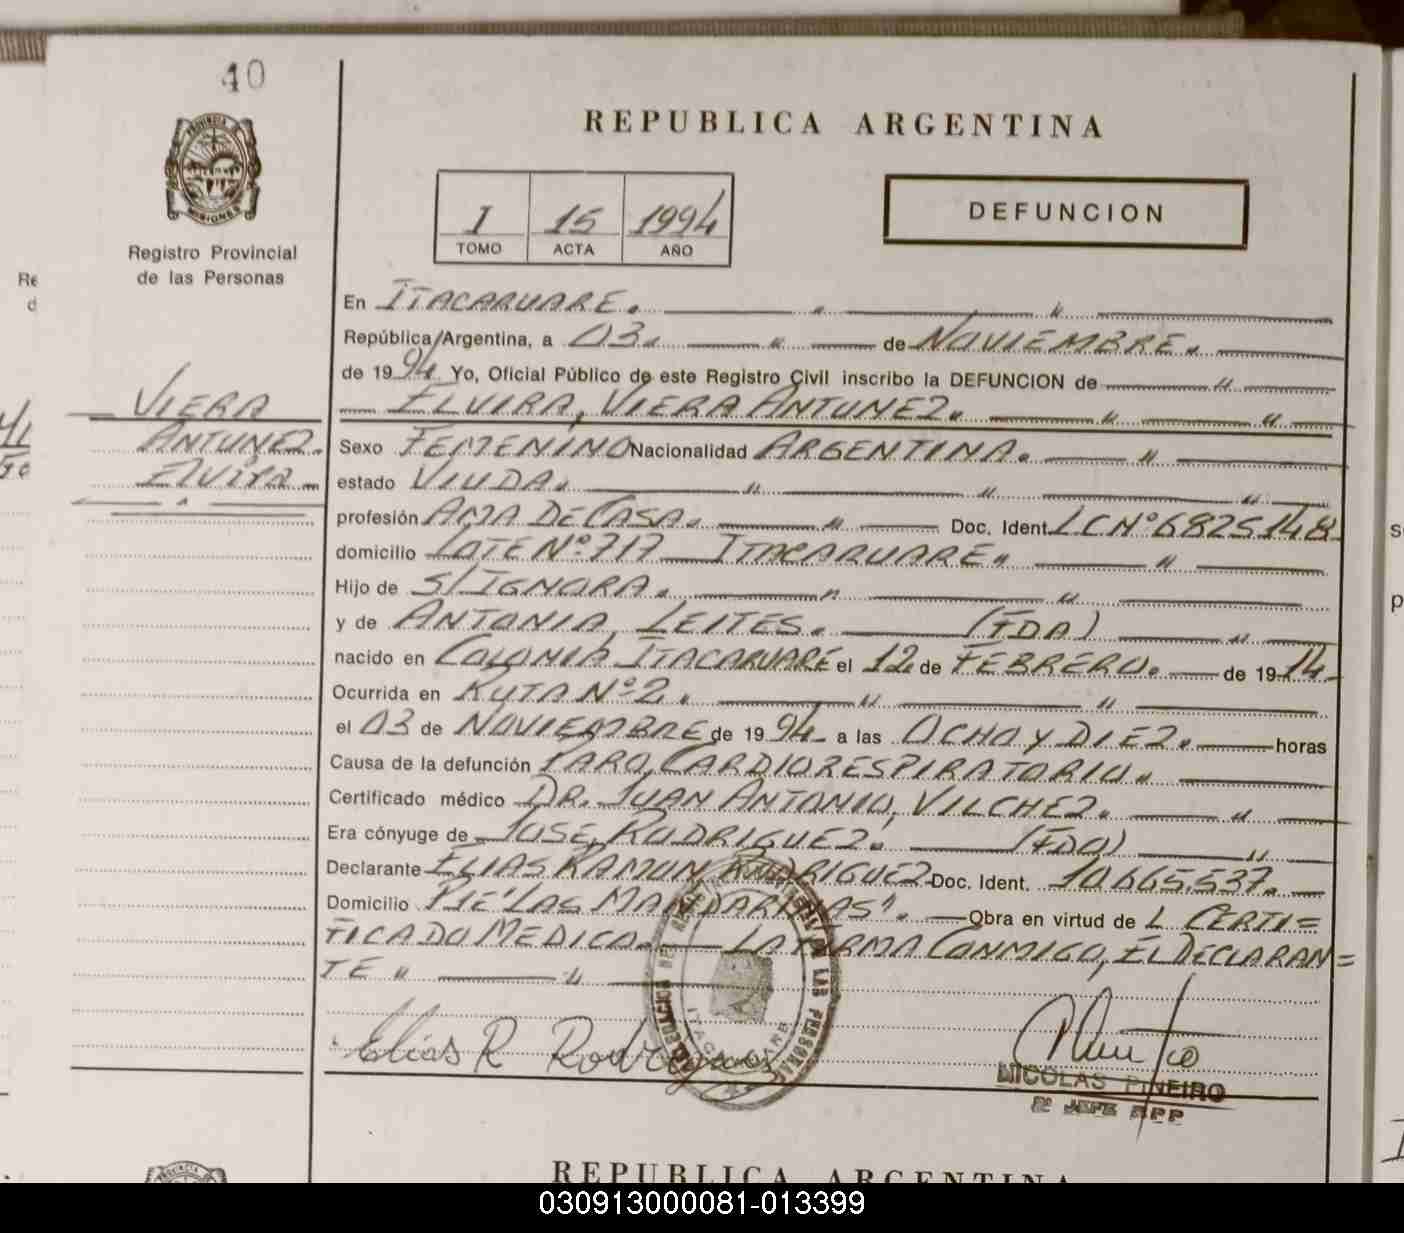 40
REPUBLICA ARGENTINA
PROVINCIA DE
MISIONES
Registro Provincial
de las Personas
I 15 1994
TOMO ACTA AÑO
DEFUNCION
VIERA
ANTUNEZ.
ELVIRA
En ITACARUARE.
República Argentina, a 03. de NOVIEMBRE.
de 1994. Yo, Oficial Público de este Registro Civil inscribo la DEFUNCION de
ELVIRA, VIERA ANTUNEZ.
Sexo FEMENINO Nacionalidad ARGENTINA.
estado VIUDA.
profesión AMA DE CASA. Doc. Ident. LC Nº 6825148
domicilio LOTE Nº 717 ITACARUARE
Hijo de S/IGNORA.
y de ANTONIA, LEITES. (FDA)
nacido en COLONIA, ITACARUARE el 12 de FEBRERO. de 1914.
Ocurrida en RUTA Nº 2.
el 03 de NOVIEMBRE de 1994 a las OCHO Y DIEZ. horas
Causa de la defunción PARO, CARDIORESPIRATORIO.
Certificado médico DR. JUAN ANTONIO, VILCHEZ.
Era cónyuge de JOSE, RODRIGUEZ. (FDO)
Declarante ELIAS RAMON, RODRIGUEZ Doc. Ident. 10.665.537.
Domicilio PJE "LAS MANDARINAS". Obra en virtud de L CERTI=
FICADO MEDICO. LA FIRMA CONMIGO, EL DECLARAN=
TE
Elías R Rodriguez
DE LAS PERSONAS
ITACARUARE
NICOLAS PINEIRO
REPUBLICA ARGENTINA
030913000081-013399